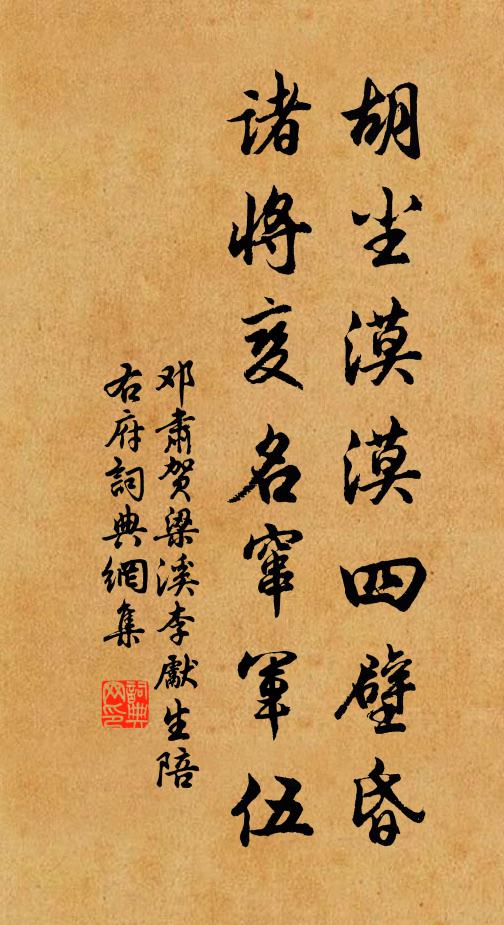 胡尘漠漠四壁昏
诸将变名窜军伍
邓肃贺梁溪李獻生陪
右府詞典網集
詞典网印